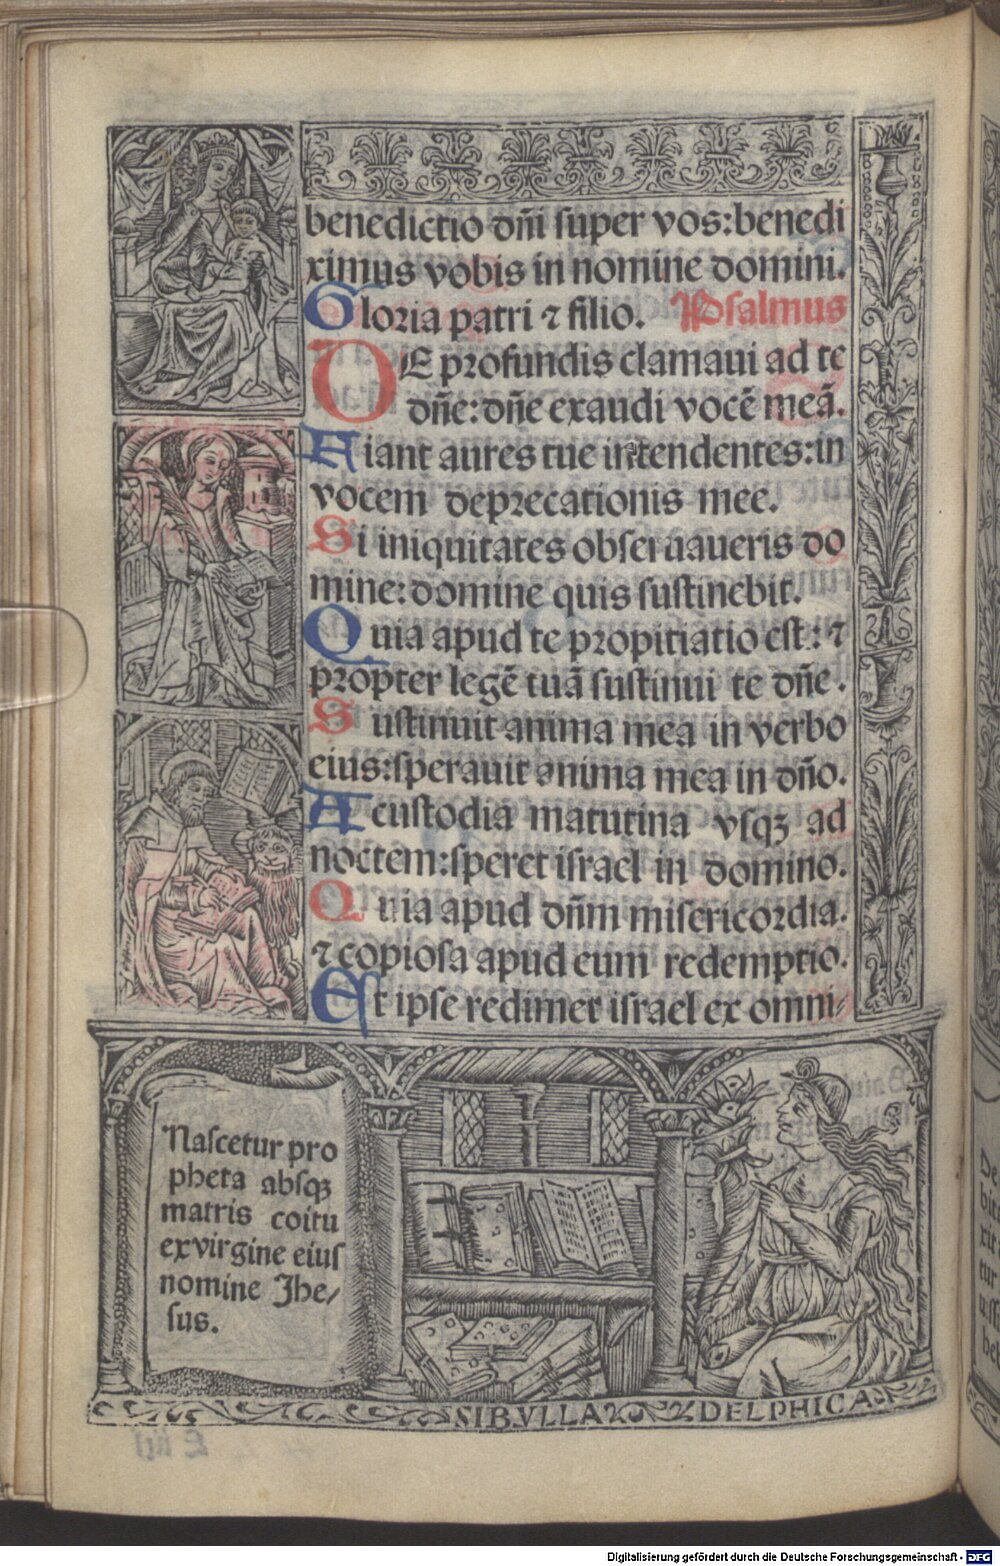 benedictio dñi super vos:benedi
ximus vobis in nomine domini.
Gloria patri ⁊ filio. Psalmus
DE profundis clamaui ad te
dñe:dñe exaudi vocẽ meã.
Fiant aures tue intendentes:in
vocem deprecationis mee.
Si iniquitates obseruaueris do
mine:domine quis sustinebit.
Quia apud te propitiatio est:⁊
propter legẽ tuã sustinui te dñe.
Sustinuit anima mea in verbo
eius:sperauit anima mea in dño.
A custodia matutina vsqꝫ ad
noctem:speret israel in domino.
Quia apud dñm misericordia.
⁊ copiosa apud eum redemptio.
Et ipse redimet israel ex omni/
Nascetur pro
pheta absqꝫ
matris coitu
ex virgine eius
nomine Jhe/
sus.
SIBVLLA DELPHICA
Digitalisierung gefördert durch die Deutsche Forschungsgemeinschaft - DFG